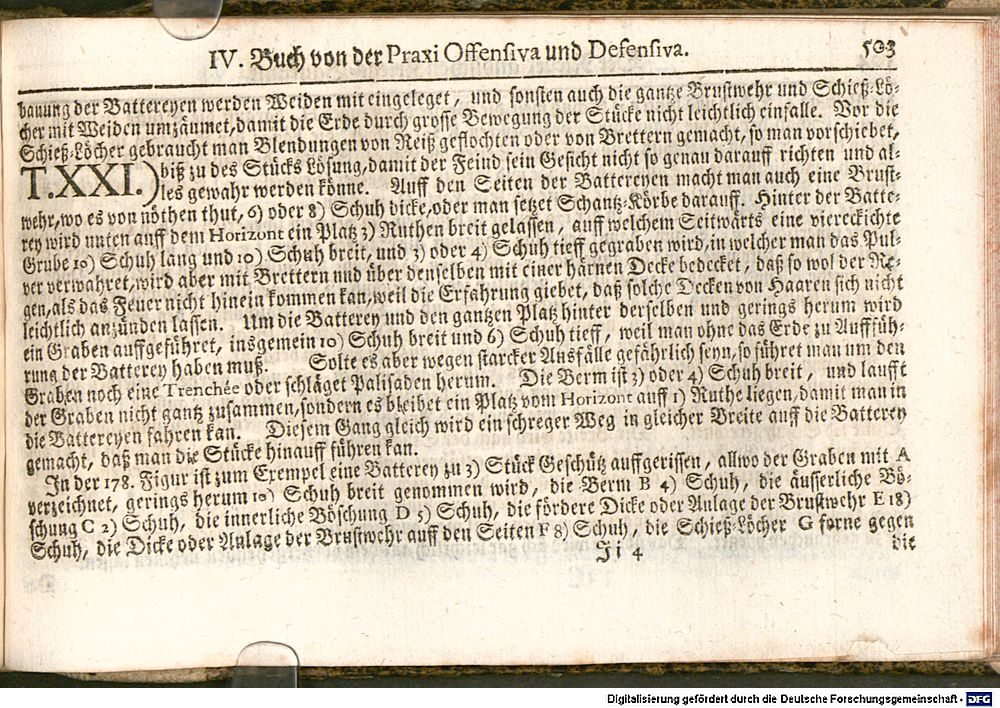 IV. Buch von der Praxi Offensiva und Defensiva. 503
bauung der Battereyen werden Weiden mit eingeleget, und sonsten auch die gantze Brustwehr und Schieß-Lö-
cher mit Weiden umzäumet, damit die Erde durch grosse Bewegung der Stücke nicht leichtlich einfalle. Vor die
Schieß-Löcher gebraucht man Blendungen von Reiß geflochten oder von Brettern gemacht, so man vorschiebet,
T.XXI.) biß zu des Stücks Lösung, damit der Feind sein Gesicht nicht so genau darauff richten und al-
les gewahr werden könne. Auff den Seiten der Battereyen macht man auch eine Brust-
wehr, wo es von nöthen thut, 6) oder 8) Schuh dicke, oder man setzet Schantz-Körbe darauff. Hinter der Batte-
rey wird unten auff dem Horizont ein Platz 3) Ruthen breit gelassen, auff welchem Seitwärts eine viereckichte
Grube 10) Schuh lang und 10) Schuh breit, und 3) oder 4) Schuh tieff gegraben wird, in welcher man das Pul-
ver verwahret, wird aber mit Brettern und über denselben mit einer härnen Decke bedecket, daß so wol der Re-
gen, als das Feuer nicht hinein kommen kan, weil die Erfahrung giebet, daß solche Decken von Haaren sich nicht
leichtlich anzünden lassen. Um die Batterey und den gantzen Platz hinter derselben und gerings herum wird
ein Graben auffgeführet, insgemein 10) Schuh breit und 6) Schuh tieff, weil man ohne das Erde zu Auffüh-
rung der Batterey haben muß. Solte es aber wegen starcker Ausfälle gefährlich seyn, so führet man um den
Graben noch eine Trenchée oder schläget Palisaden herum. Die Berm ist 3) oder 4) Schuh breit, und laufft
der Graben nicht gantz zusammen, sondern es bleibet ein Platz vom Horizont auff 1) Ruthe liegen, damit man in
die Battereyen fahren kan. Diesem Gang gleich wird ein schreger Weg in gleicher Breite auff die Batterey
gemacht, daß man die Stücke hinauff führen kan.
In der 178. Figur ist zum Exempel eine Batterey zu 3) Stück Geschütz auffgerissen, allwo der Graben mit A
verzeichnet, gerings herum 10) Schuh breit genommen wird, die Berm B 4) Schuh, die äusserliche Bö-
schung C 2) Schuh, die innerliche Böschung D 5) Schuh, die fördere Dicke oder Anlage der Brustwehr E 18)
Schuh, die Dicke oder Anlage der Brustwehr auff den Seiten F 8) Schuh, die Schieß-Löcher G forne gegen
Ji 4 die
Digitalisierung gefördert durch die Deutsche Forschungsgemeinschaft - DFG